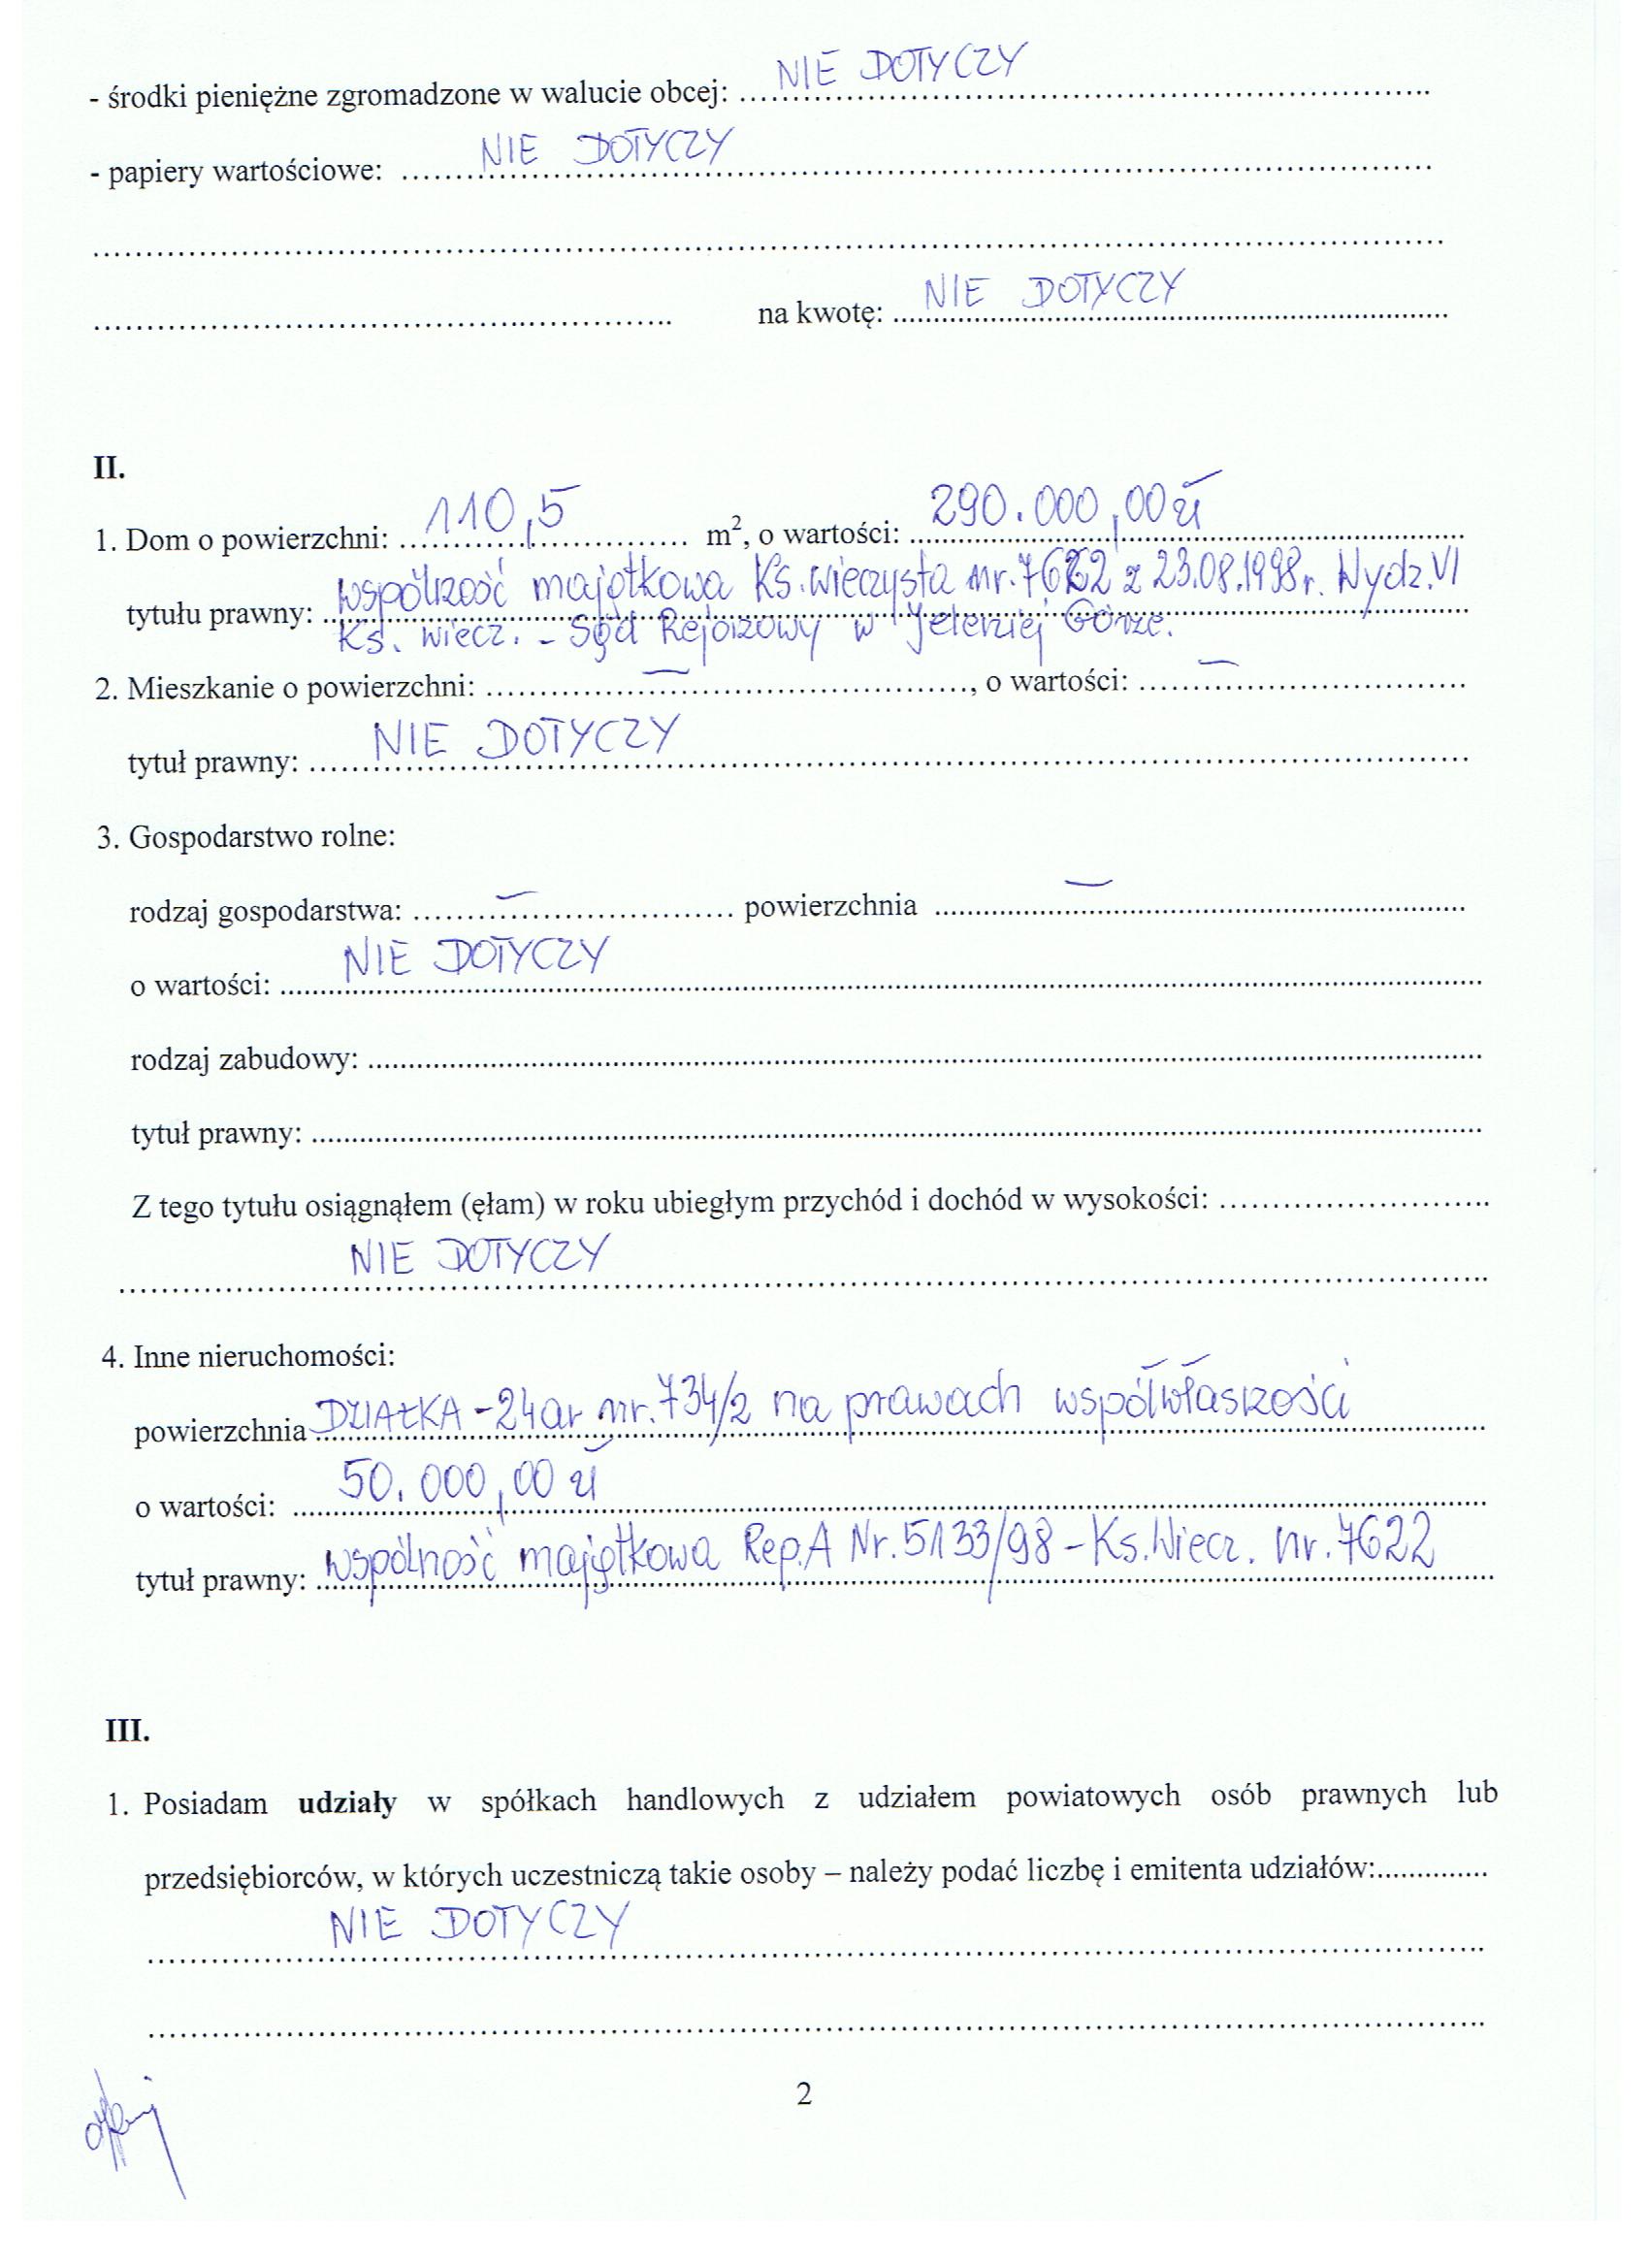 - środki pieniężne zgromadzone w walucie obcej: NIE DOTYCZY
- papiery wartościowe: NIE DOTYCZY
na kwotę: NIE DOTYCZY
II.
1. Dom o powierzchni: 110,5 m², o wartości: 290.000,00 zł
tytułu prawny: wspólność majątkowa Ks. wieczysta nr. 7622 z 23.08.1998r. Wydz. VI
Ks. wiecz. - Sąd Rejonowy w Jeleniej Górze.
2. Mieszkanie o powierzchni: — , o wartości: —
tytuł prawny: NIE DOTYCZY
3. Gospodarstwo rolne:
rodzaj gospodarstwa: — powierzchnia —
o wartości: NIE DOTYCZY
rodzaj zabudowy:
tytuł prawny:
Z tego tytułu osiągnąłem (ęłam) w roku ubiegłym przychód i dochód w wysokości:
NIE DOTYCZY
4. Inne nieruchomości:
powierzchnia DZIAŁKA - 24 ar nr. 734/2 na prawach współwłasności
o wartości: 50.000,00 zł
tytuł prawny: wspólność majątkowa Rep.A Nr. 5133/98 - Ks. Wiecz. nr. 7622
III.
1. Posiadam udziały w spółkach handlowych z udziałem powiatowych osób prawnych lub
przedsiębiorców, w których uczestniczą takie osoby – należy podać liczbę i emitenta udziałów:
NIE DOTYCZY
2